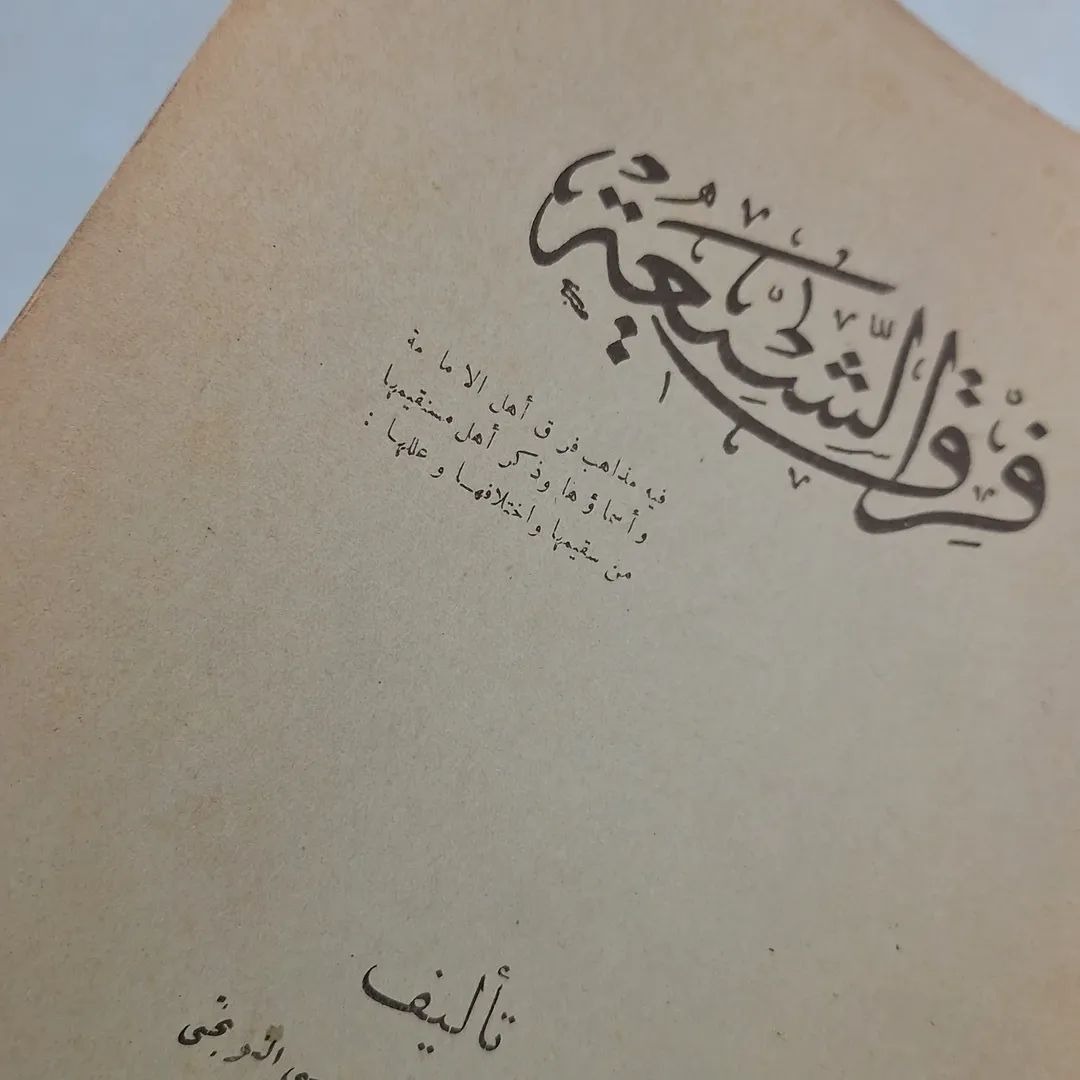 فِرَقُ الشِّيعَةِ
فيه مذاهب فر ق أهل الا ما مة
وأسماؤ ها وذكر أهل مستقيمها
من سقيمها واختلافهـا وعللها :
تأليف
النوبختى